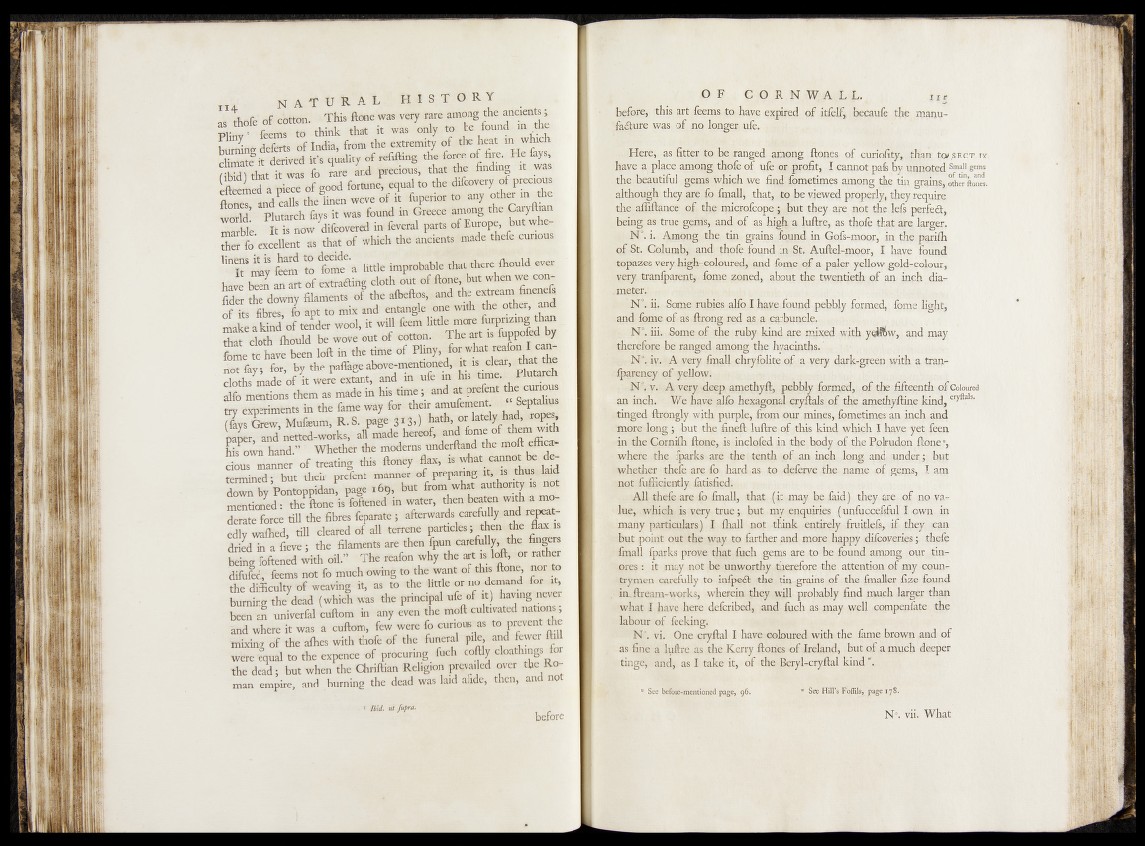 114 NATURAL HISTORY
as thoſe of cotton. This ſtone was very rare among the ancients;
Pliny ᵗ ſeems to think that it was only to be found in the
burning deſerts of India, from the extremity of the heat in which
climate it derived it's quality of reſiſting the force of fire. He ſays,
(ibid) that it was ſo rare and precious, that the finding it was
eſteemed a piece of good fortune, equal to the diſcovery of precious
ſtones, and calls the linen wove of it ſuperior to any other in the
world. Plutarch ſays it was found in Greece among the Caryſtian
marble. It is now diſcovered in ſeveral parts of Europe, but whe-
ther ſo excellent as that of which the ancients made theſe curious
linens it is hard to decide.
It may ſeem to ſome a little improbable that there ſhould ever
have been an art of extracting cloth out of ſtone, but when we con-
ſider the downy filaments of the aſbeſtos, and the extream fineneſs
of its fibres, ſo apt to mix and entangle one with the other, and
make a kind of tender wool, it will ſeem little more ſurprizing than
that cloth ſhould be wove out of cotton. The art is ſuppoſed by
ſome to have been loſt in the time of Pliny, for what reaſon I can-
not ſay; for, by the paſſage above-mentioned, it is clear, that the
cloths made of it were extant, and in uſe in his time. Plutarch
alſo mentions them as made in his time; and at preſent the curious
try experiments in the ſame way for their amuſement. “ Septalius
(ſays Grew, Muſæum, R. S. page 313,) hath, or lately had, ropes,
paper, and netted-works, all made hereof, and ſome of them with
his own hand.” Whether the moderns underſtand the moſt effica-
cious manner of treating this ſtoney flax, is what cannot be de-
termined; but their preſent manner of preparing it, is thus laid
down by Pontoppidan, page 169, but from what authority is not
mentioned: the ſtone is ſoftened in water, then beaten with a mo-
derate force till the fibres ſeparate; afterwards carefully and repeat-
edly waſhed, till cleared of all terrene particles; then the flax is
dried in a ſieve; the filaments are then ſpun carefully, the fingers
being ſoftened with oil.” The reaſon why the art is loſt, or rather
diſuſed, ſeems not ſo much owing to the want of this ſtone, nor to
the difficulty of weaving it, as to the little or no demand for it,
burning the dead (which was the principal uſe of it) having never
been an univerſal cuſtom in any even the moſt cultivated nations;
and where it was a cuſtom, few were ſo curious as to prevent the
mixing of the aſhes with thoſe of the funeral pile, and fewer ſtill
were equal to the expence of procuring ſuch coſtly cloathings for
the dead; but when the Chriſtian Religion prevailed over the Ro-
man empire, and burning the dead was laid aſide, then, and not
ᵗ Ibid. ut ſupra.
before
OF CORNWALL. 115
before, this art ſeems to have expired of itſelf, becauſe the manu-
facture was of no longer uſe.
Here, as fitter to be ranged among ſtones of curioſity, than to SECT. IV.
have a place among thoſe of uſe or profit, I cannot paſs by unnoted Small gems
the beautiful gems which we find ſometimes among the tin grains, of tin, and other ſtones.
although they are ſo ſmall, that, to be viewed properly, they require
the aſſiſtance of the microſcope; but they are not the leſs perfect,
being as true gems, and of as high a luſtre, as thoſe that are larger.
N°. i. Among the tin grains found in Goſs-moor, in the pariſh
of St. Columb, and thoſe found in St. Auſtel-moor, I have found
topazes very high-coloured, and ſome of a paler yellow gold-colour,
very tranſparent, ſome zoned, about the twentieth of an inch dia-
meter.
N°. ii. Some rubies alſo I have found pebbly formed, ſome light,
and ſome of as ſtrong red as a carbuncle.
N°. iii. Some of the ruby kind are mixed with yellow, and may
therefore be ranged among the hyacinths.
N°. iv. A very ſmall chryſolite of a very dark-green with a tran-
ſparency of yellow.
N°. v. A very deep amethyſt, pebbly formed, of the fifteenth of Coloured
an inch. We have alſo hexagonal cryſtals of the amethyſtine kind, cryſtals.
tinged ſtrongly with purple, from our mines, ſometimes an inch and
more long; but the fineſt luſtre of this kind which I have yet ſeen
in the Corniſh ſtone, is incloſed in the body of the Polrudon ſtone ᵘ,
where the ſparks are the tenth of an inch long and under; but
whether theſe are ſo hard as to deſerve the name of gems, I am
not ſufficiently ſatisfied.
All theſe are ſo ſmall, that (it may be ſaid) they are of no va-
lue, which is very true; but my enquiries (unſucceſsful I own in
many particulars) I ſhall not think entirely fruitleſs, if they can
but point out the way to farther and more happy diſcoveries; theſe
ſmall ſparks prove that ſuch gems are to be found among our tin-
ores: it may not be unworthy therefore the attention of my coun-
trymen carefully to inſpect the tin grains of the ſmaller ſize found
in ſtream-works, wherein they will probably find much larger than
what I have here deſcribed, and ſuch as may well compenſate the
labour of ſeeking.
N°. vi. One cryſtal I have coloured with the ſame brown and of
as fine a luſtre as the Kerry ſtones of Ireland, but of a much deeper
tinge, and, as I take it, of the Beryl-cryſtal kind ʷ.
ᵘ See before-mentioned page, 96. ʷ See Hill's Foſſils, page 178.
N°. vii. What